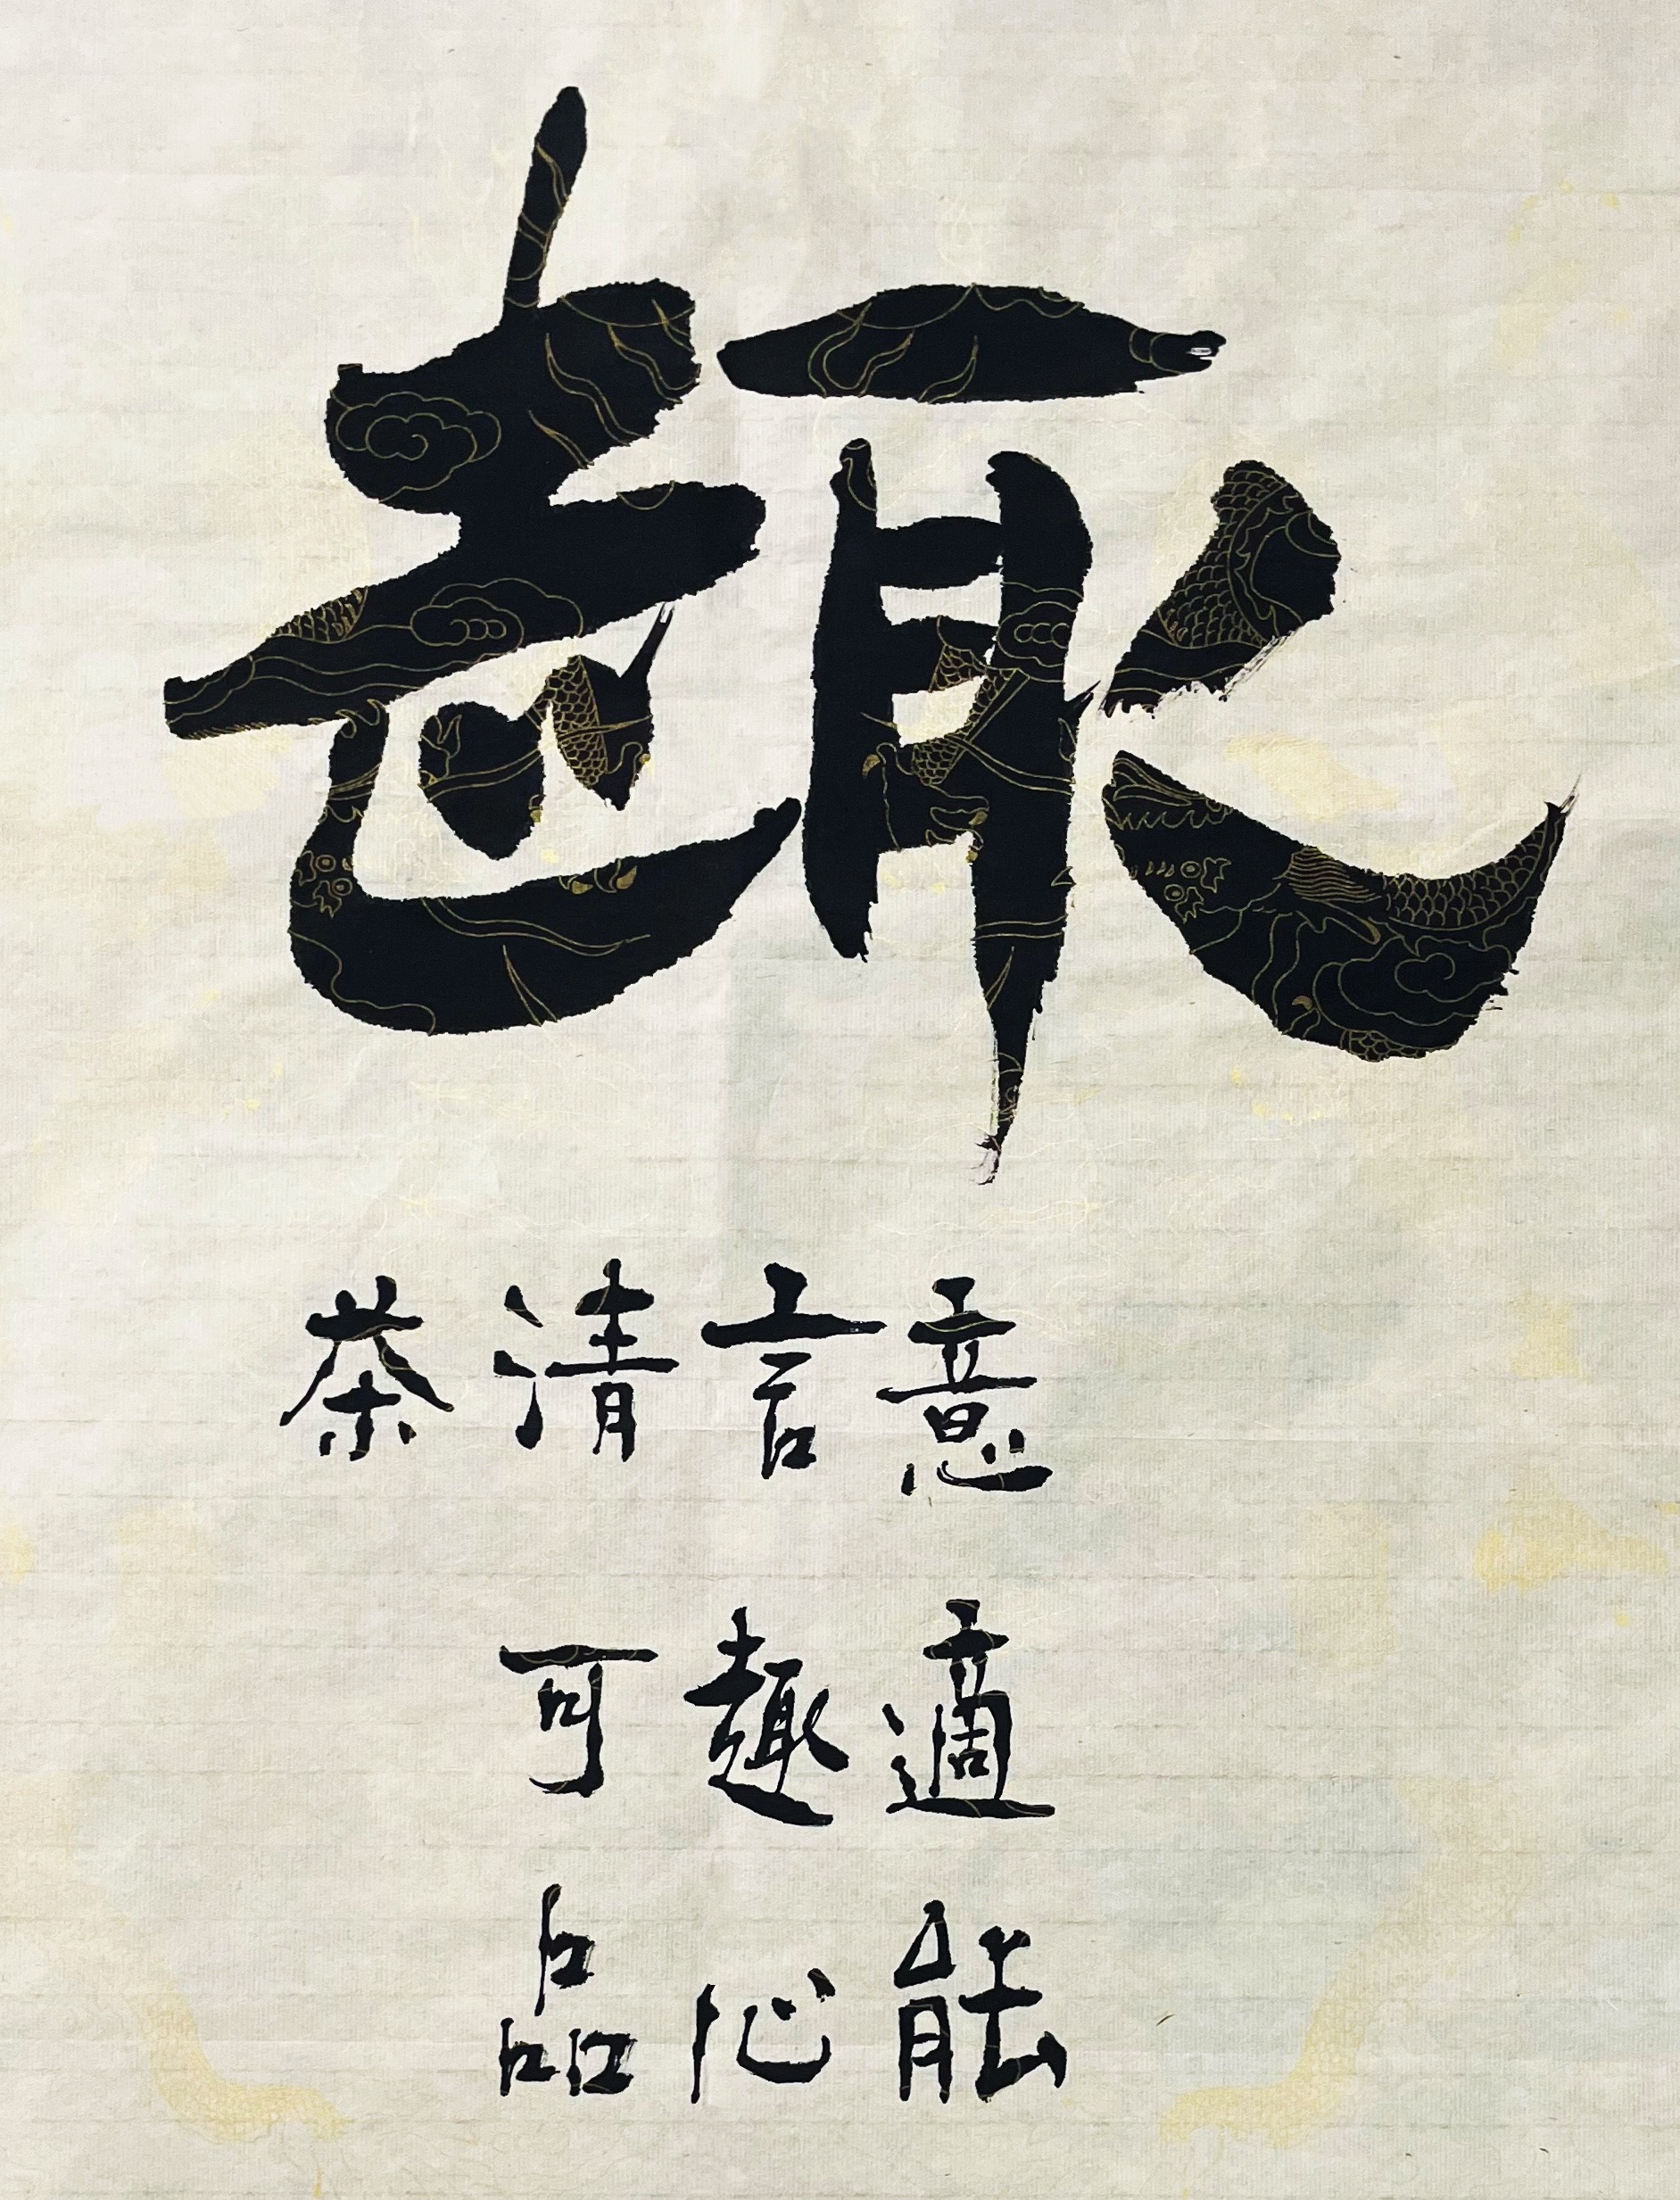 趣
意適能
言趣心
清可品
茶